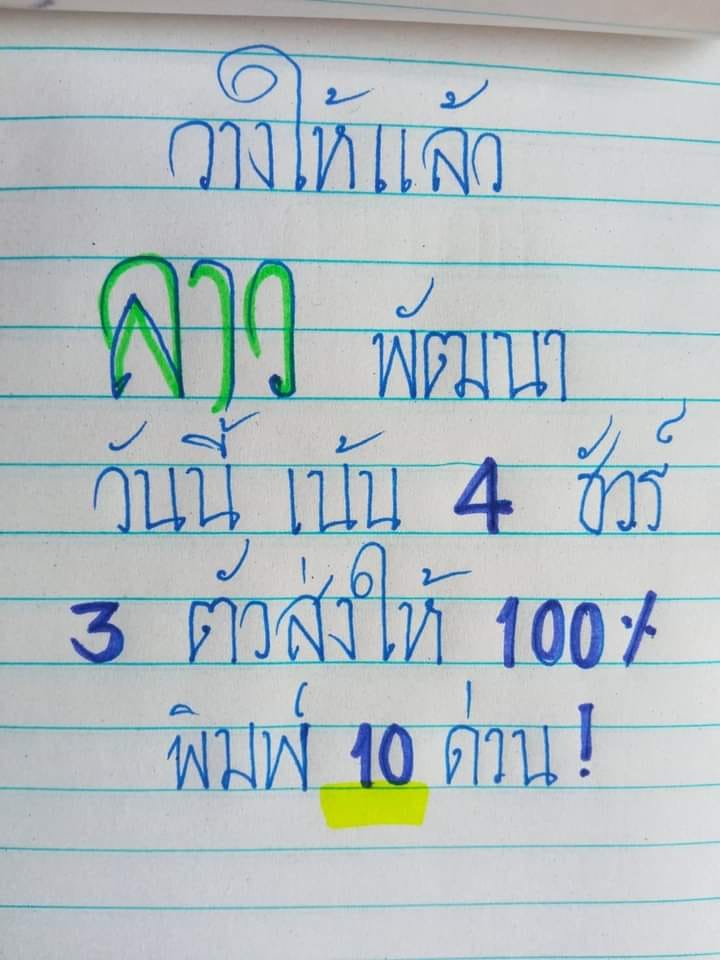 วางให้แล้ว
ลาว พัฒนา
วันนี้ เน้น 4 ชัวร์
3 ตัวส่งให้ 100%
พิมพ์ 10 ด่วน!